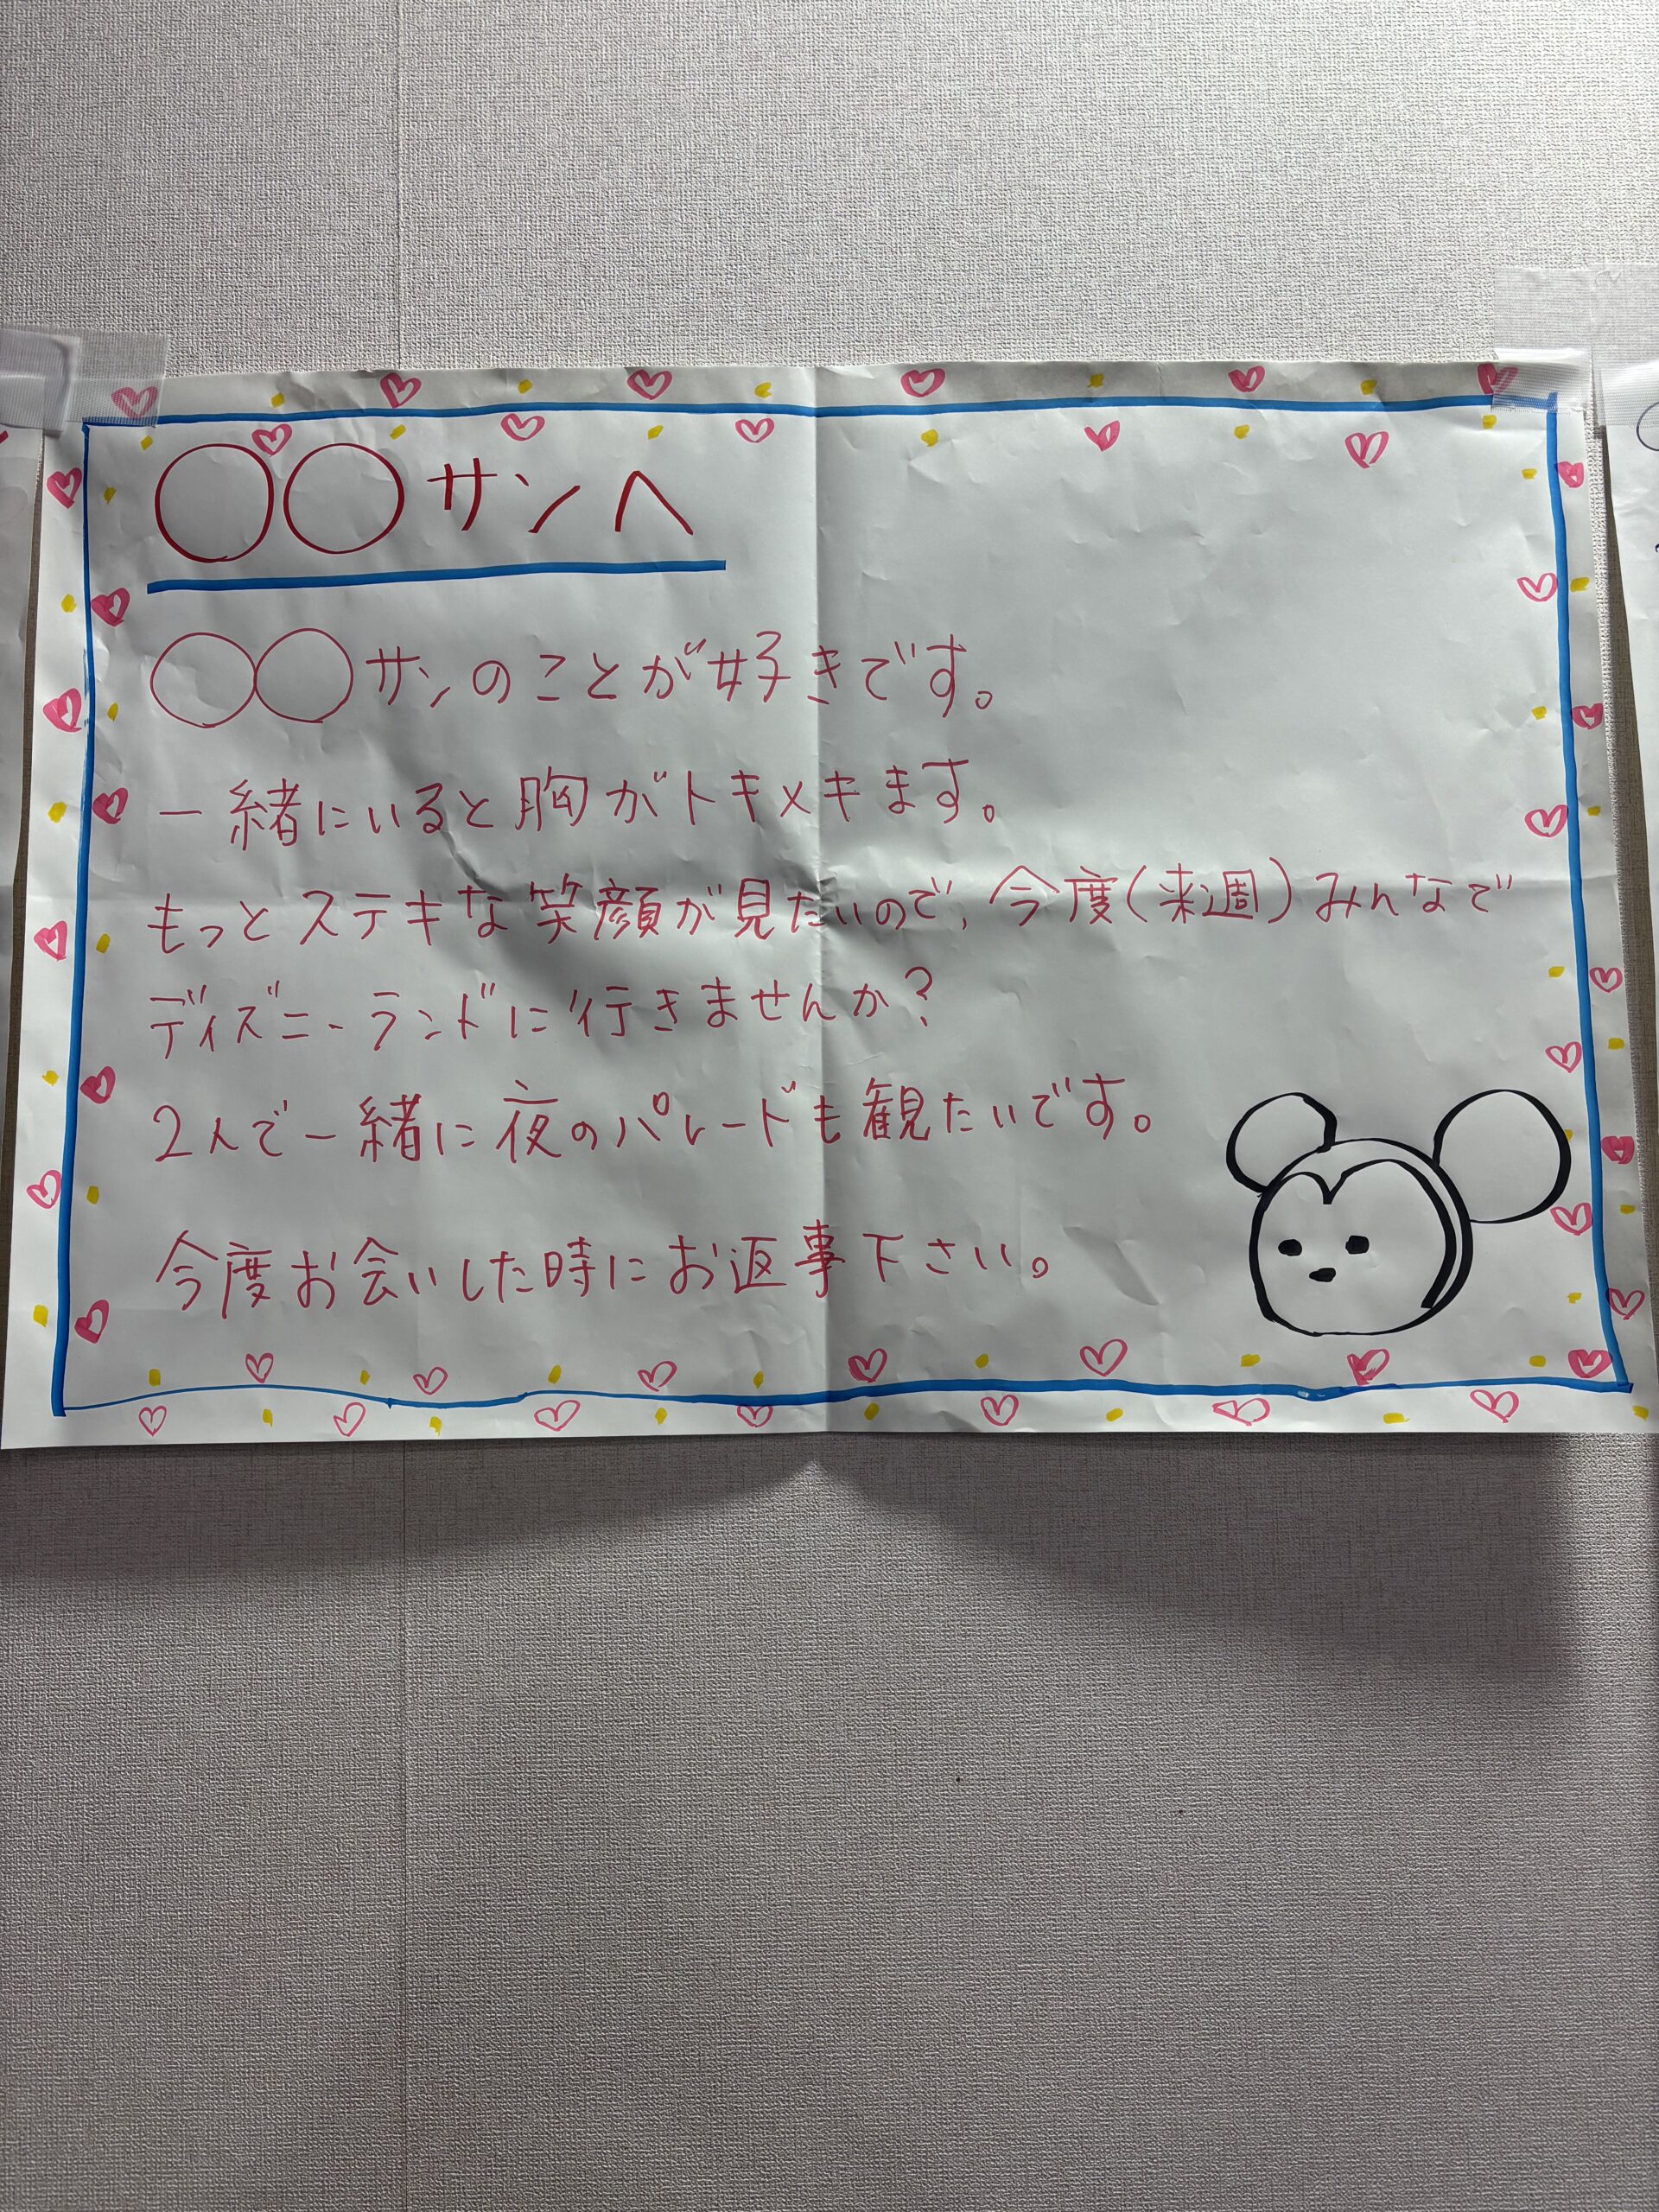 ○○サンへ
○○サンのことが好きです。
一緒にいると胸がトキメキます。
もっとステキな笑顔が見たいので、今度(来週)みんなで
ディズニーランドに行きませんか?
2人で一緒に夜のパレードも観たいです。
今度お会いした時にお返事下さい。